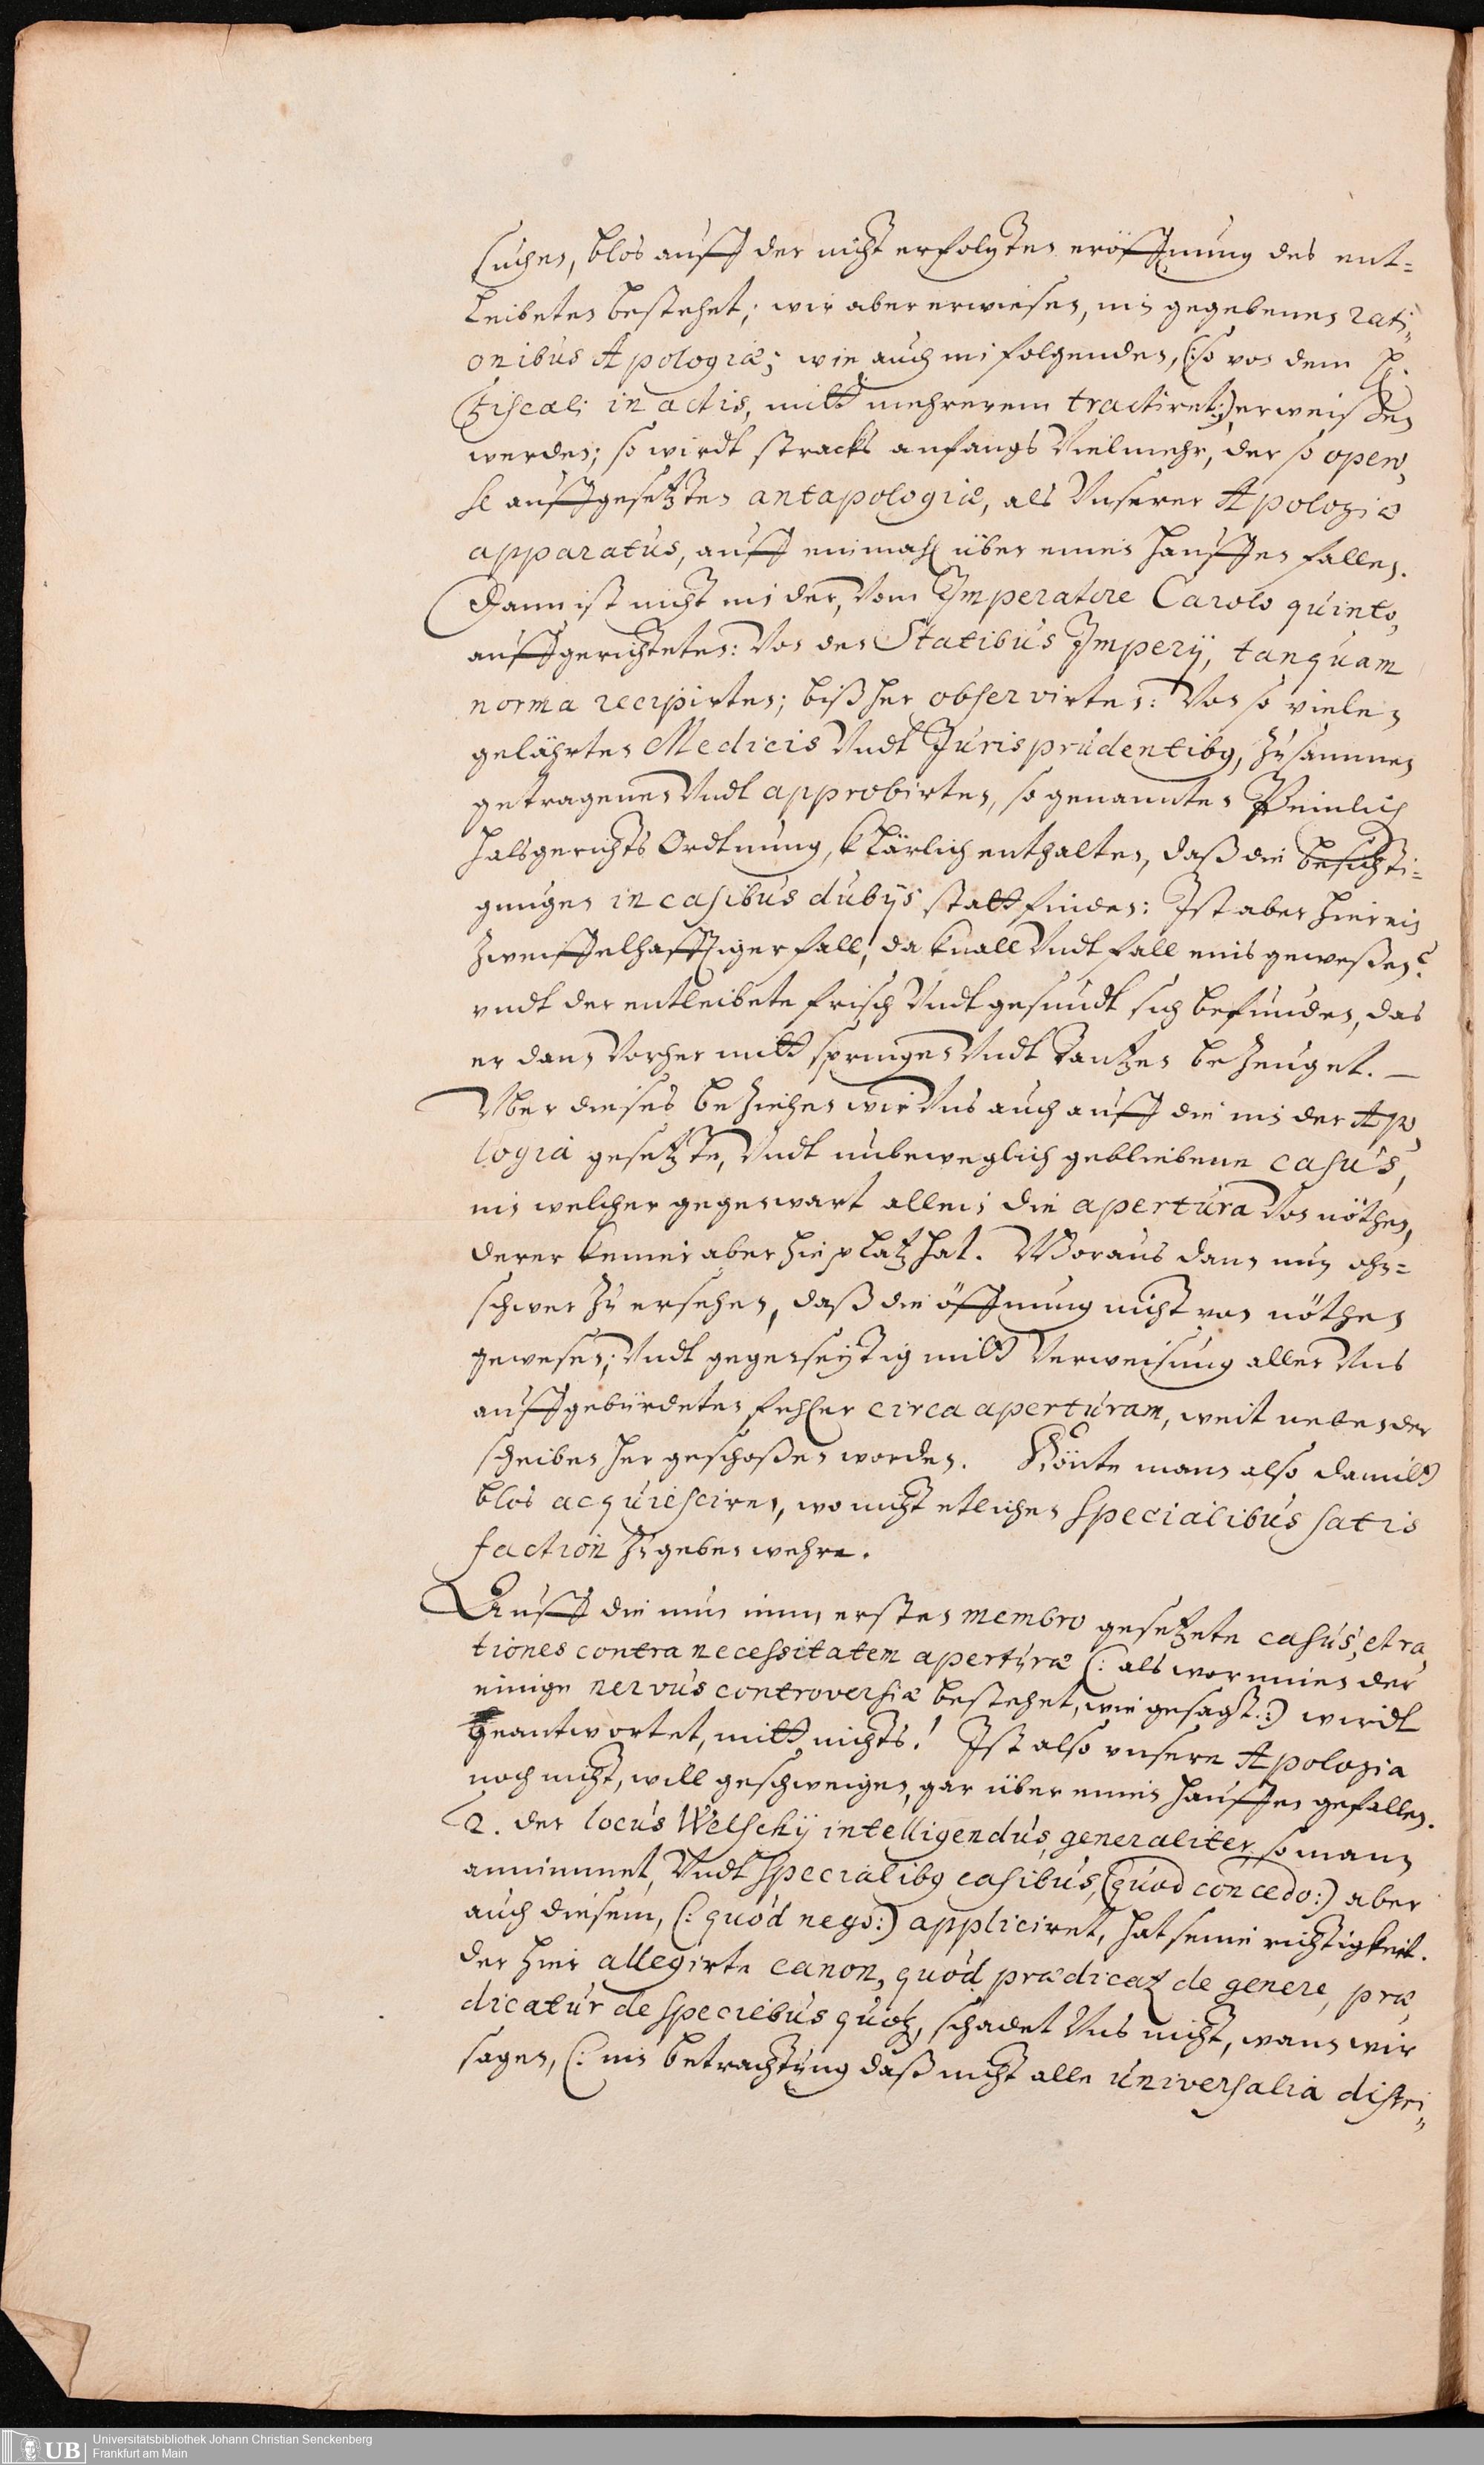 suchen, blos auff der nicht erfolgten eröffnung des ent=
leibeten bestehet; wir aber erwiesen, in gegebenen rati„
onibus Apologiæ; wie auch in folgenden, (:so von dem H.
Fiscali in actis, mitt mehrerem tractiret:) erweissen
werden; so wirdt stracks anfangs Vielmehr, der so opero„
sè auffgesetzten antapologiæ, als Vnserer Apologiæ
apparatus, auff einmahl über einen hauffen fallen.
Dann ist nicht in der, Vom Imperatore Carolo quinto,
auffgerichteten: Von den Statibus Imperÿ, tanquam
norma recipirten; bißher observirten: Von so vielen
gelährten Medicis Vndt Jurisprudentibq, zusammen
getragenen Vndt approbirten, so genannten Peinlich
halsgerichts Ordtnung, klärlich enthalten, daß die besichti=
gungen in casibus dubÿs statt finden: Ist aber hier ein
zweiffelhafftiger fall, da knall Vndt fall eins geweßen?
vndt der entleibete frisch Vndt gesundt sich befunden, das
er dann Vorher mitt springen Vndt tantzen bezeuget. —
Vber dieses beziehen wir Vns auch auff die in der Apo„
logia gesetzte, Vndt unbeweglich gebliebene casus,
in welcher gegenwart allein die apertura Von nöthen,
derer keiner aber hie platz hat. Woraus dann nun ohn=
schwer zu ersehen, daß die öffnung nicht von nöthen
gewesen; Vndt gegenseÿtig mitt Verweisung aller Vns
auffgebürdeten fehler circa aperturam, weit neben der
scheiben her geschoßen worden. Könte mann also damitt
blos acquiesciren, wo nicht etlichen specialibus satis
faction zu geben wehre.
Auff die nun inn ersten membro gesetzete casus, et ra„
tiones contra necessitatem aperturæ (: als worinnen der
einige nervus controversiæ bestehet, wie gesagt.:) wirdt
geantwortet, mitt nichts! Ist also vnsere Apologia
noch nicht, will geschweigen, gar über einen hauffen gefallen.
2. der locus Welschÿ intelligendus, generaliter, so mann
annimmet, Vndt specialibq casibus, (quod concedo:) aber
auch diesem, (: quod nego:) appliciret, hat seine richtigkeit.
der hier allegirte canon, quod prædicatz de genere, præ„
dicatur de speciebus quoq, schadet Vns nicht, wann wir
sagen, (: in betrachtung daß nicht alle universalia distri„
Universitätsbibliothek Johann Christian Senckenberg
Frankfurt am Main
UB